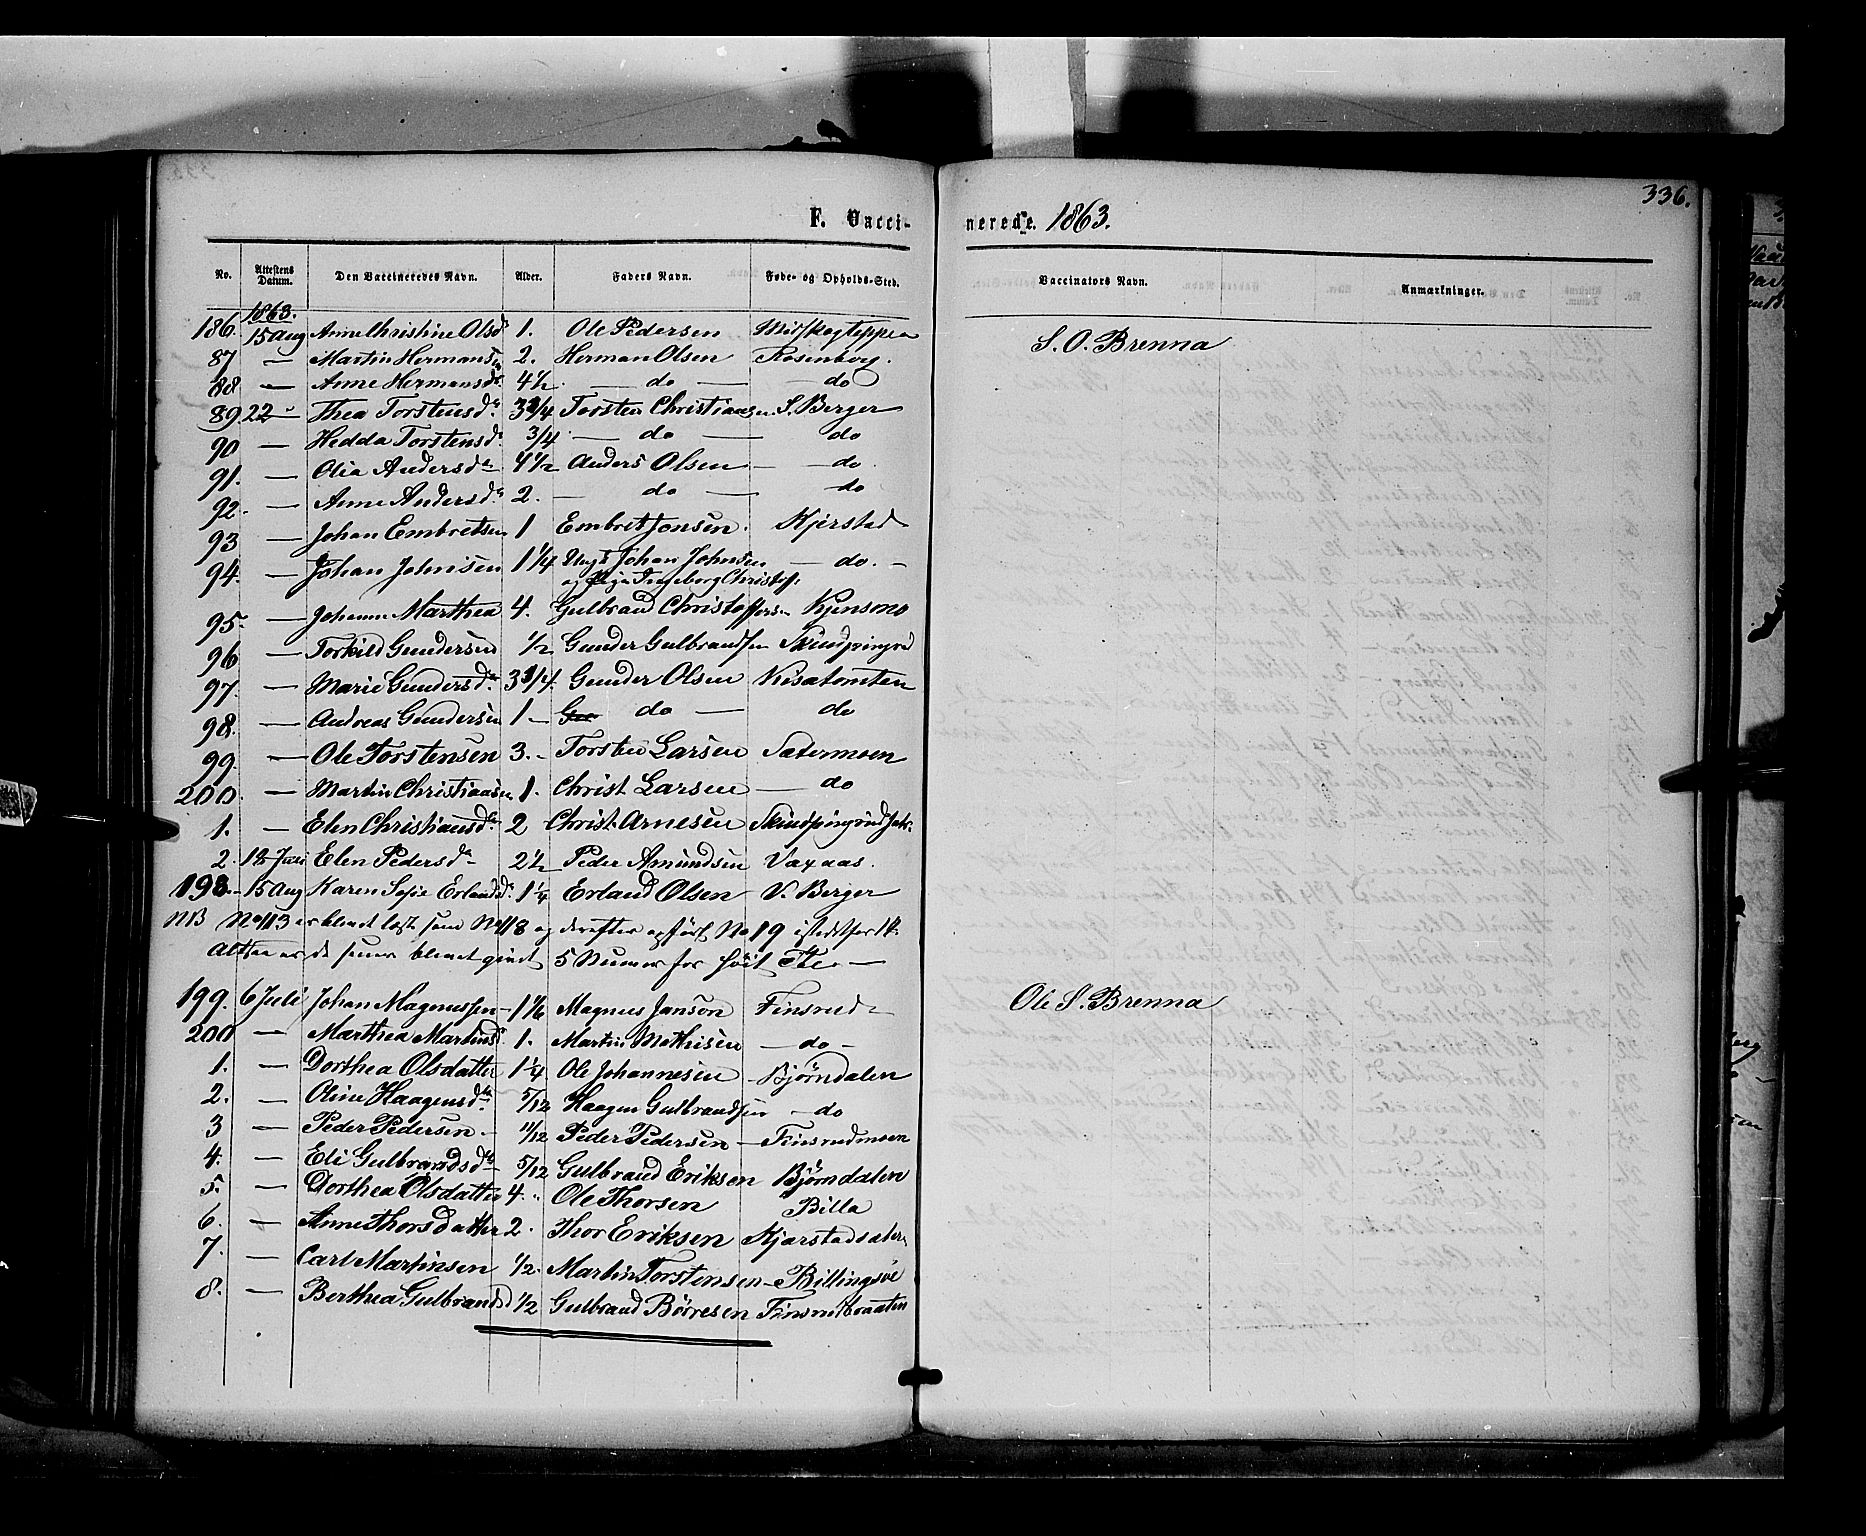 336.
F. Vacci-nerede. 1863.
No. Attestens Datum. Den Vaccineredes Navn. Alder. Faders Navn. Føde- og Opholds-Sted. Vaccinators Navn. Anmærkninger.
1863.
186. 15 Aug Anne Christine Olsd. 1. Ole Pedersen S. O. Brenna
87 — Martin Hermansen 2. Herman Olsen Rosenborg.
88 — Anne Hermansd. 4½ — do — — do
89. 22 — Thea Torstensd. Torsten Christiansen S. Berger
90 — Hedda Torstensd. 3/4 — do — do
91. — Olia Andersda 4½ Anders Olsen — do.
92. — Anne Andersda 2. — do — do
93 — Johan Embretsen 1 Embret Jonsen. Kjerstad
94. — Johan Johnsen 1¼ Ungk Johan Johnsen — do. —
og Pige Ingeborg Christofs:
95. — Johanne Marthea 4. Gulbrand Christoffersen Kjensmo
96 — Torkild Gundersen ½ Gunder Gulbrandsen
97. — Marie Gundersda Gunder Olsen Kisatomten
98. — Andreas Gundersen 1 — do — do
99 — Ole Torstensen 3. — Torsten Larsen Sætermoen
200. — Martin Christiansen 1. Christ Larsen — do
1. — Elen Christiansda 2 Christ. Arnesen
2. 18 Juni Elen Pedersda 2½ Peder Amundsen Vaxaas.
198. — 15 Aug Karen Sofie Erlandsd. 1¼ Erland Olsen V. Berger
NB No 113 er blevet læst som No 118 og derefter opført No 19 istedetfor 14.
Altsaa er de senere blevet givet 5 Numer for høit. —
199. 6 Juli Johan Magnussen — 1 1/6 Magnus Janson Finsrud Ole S. Brenna
200 — Marthea Martinsd. 1. Martin Mathisen — do —
1. — Dorthea Olsdatter 1¼ Ole Johannesen Bjørndalen
2. — Oline Haagensda 5/12 Haagen Gulbrandsen — do
3 — Peder Pedersen — 11/12 Peder Pedersen — Finsrudmoen
4. — Eli Gulbrandsda 5/12 Gulbrand Eriksen Bjørndalen
5. — Dorthea Olsdatter 4. Ole Thorsen Billa
6. — Anne Thorsdatter 2. Thor Eriksen Kjarstadsæter
7. — Carl Martinsen ½. Martin Torstensen — Billingsøe
8. — Berthea Gulbrandsd ½ Gulbrand Børresen Finsrudbraaten